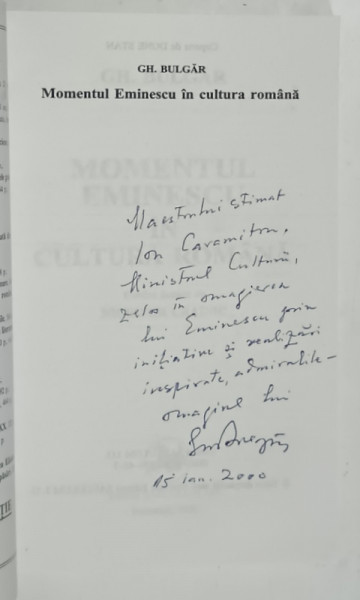 GH. BULGĂR
Momentul Eminescu în cultura română
Maestrului stimat
Ion Caramitru,
Ministrul Culturii,
zelos în omagierea
lui Eminescu prin
inițiative și realizări
inspirate, admirabile –
omagiul lui
15 ian. 2000